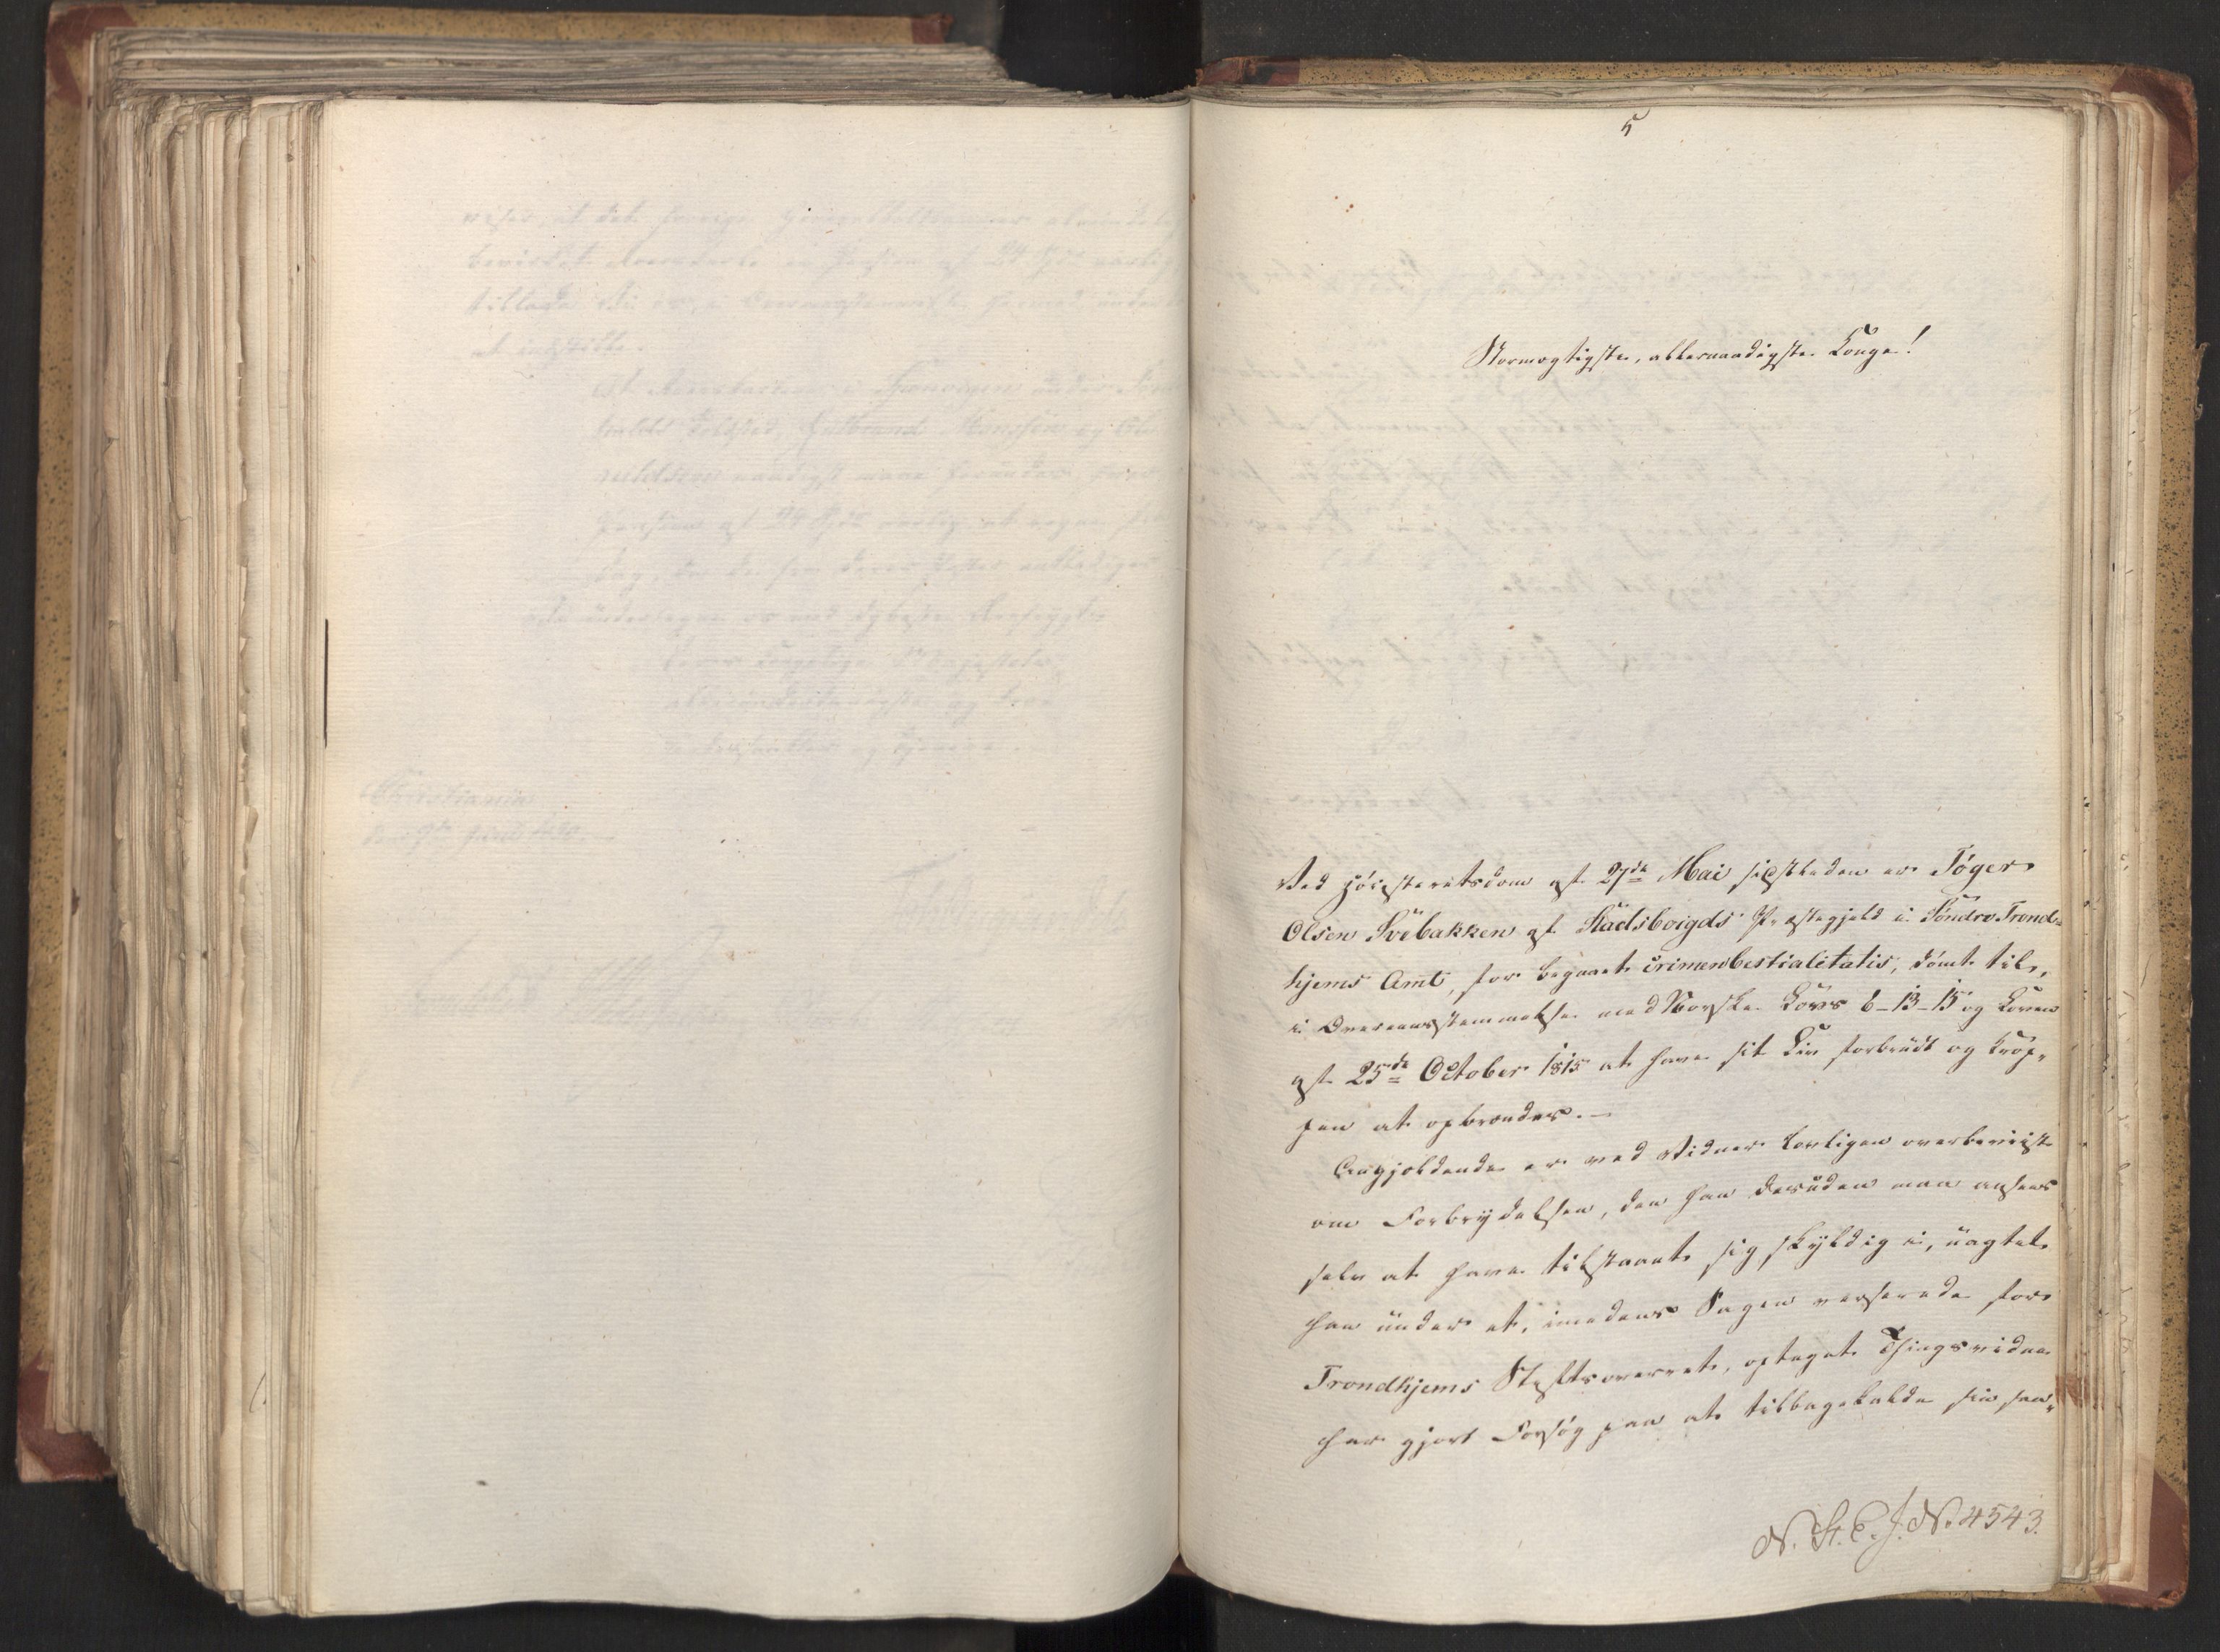 5
Stormægtigste, allernaadigste Konge!
Ved Høiesteretsdom af 27de Mai sidstleden er Tøger
Olsen Svebakken af Stadsboigds Præstegjeld i Søndre Trond-
hjems Amt, for begaaet crimen bestialitatis, dømt til,
i Overeensstemmelse med Norske Lovs 6-13-15 og Loven
af 25de October 1815 at have sit Liv forbrudt og Krop-
pen at opbrændes. —
Angjeldende er ved Vidner lovligen overbeviist
om Forbrydelsen, den han desuden maa ansees
selv at have tilstaaet sig skyldig i, uagtet
han under et, imedens Sagen verserede for
Trondhjems Stiftsoverret, optaget Thingsvidne
har gjort Forsøg paa at tilbagekalde sin saa-
N. St. E. J. No 4543.